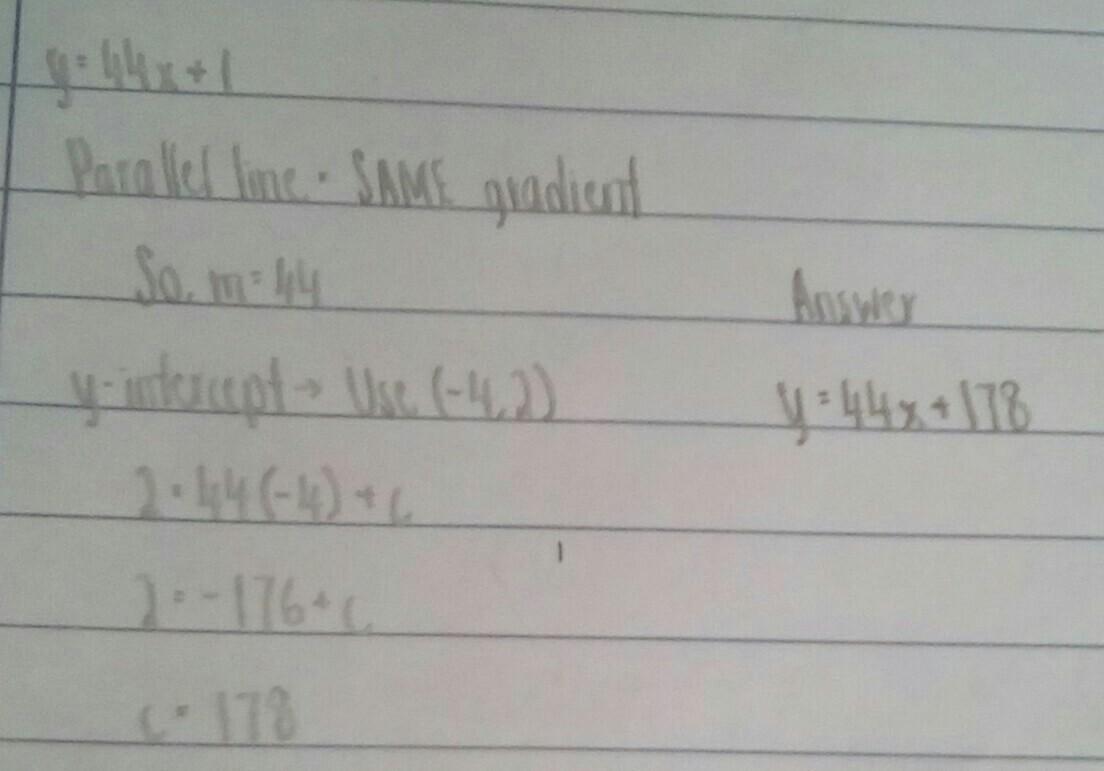 y = 44x + 1
Parallel line = SAME gradient
So, m = 44
y-intercept → Use (-4,2)
2 = 44(-4) + c
2 = -176 + c
c = 178
Answer
y = 44x + 178